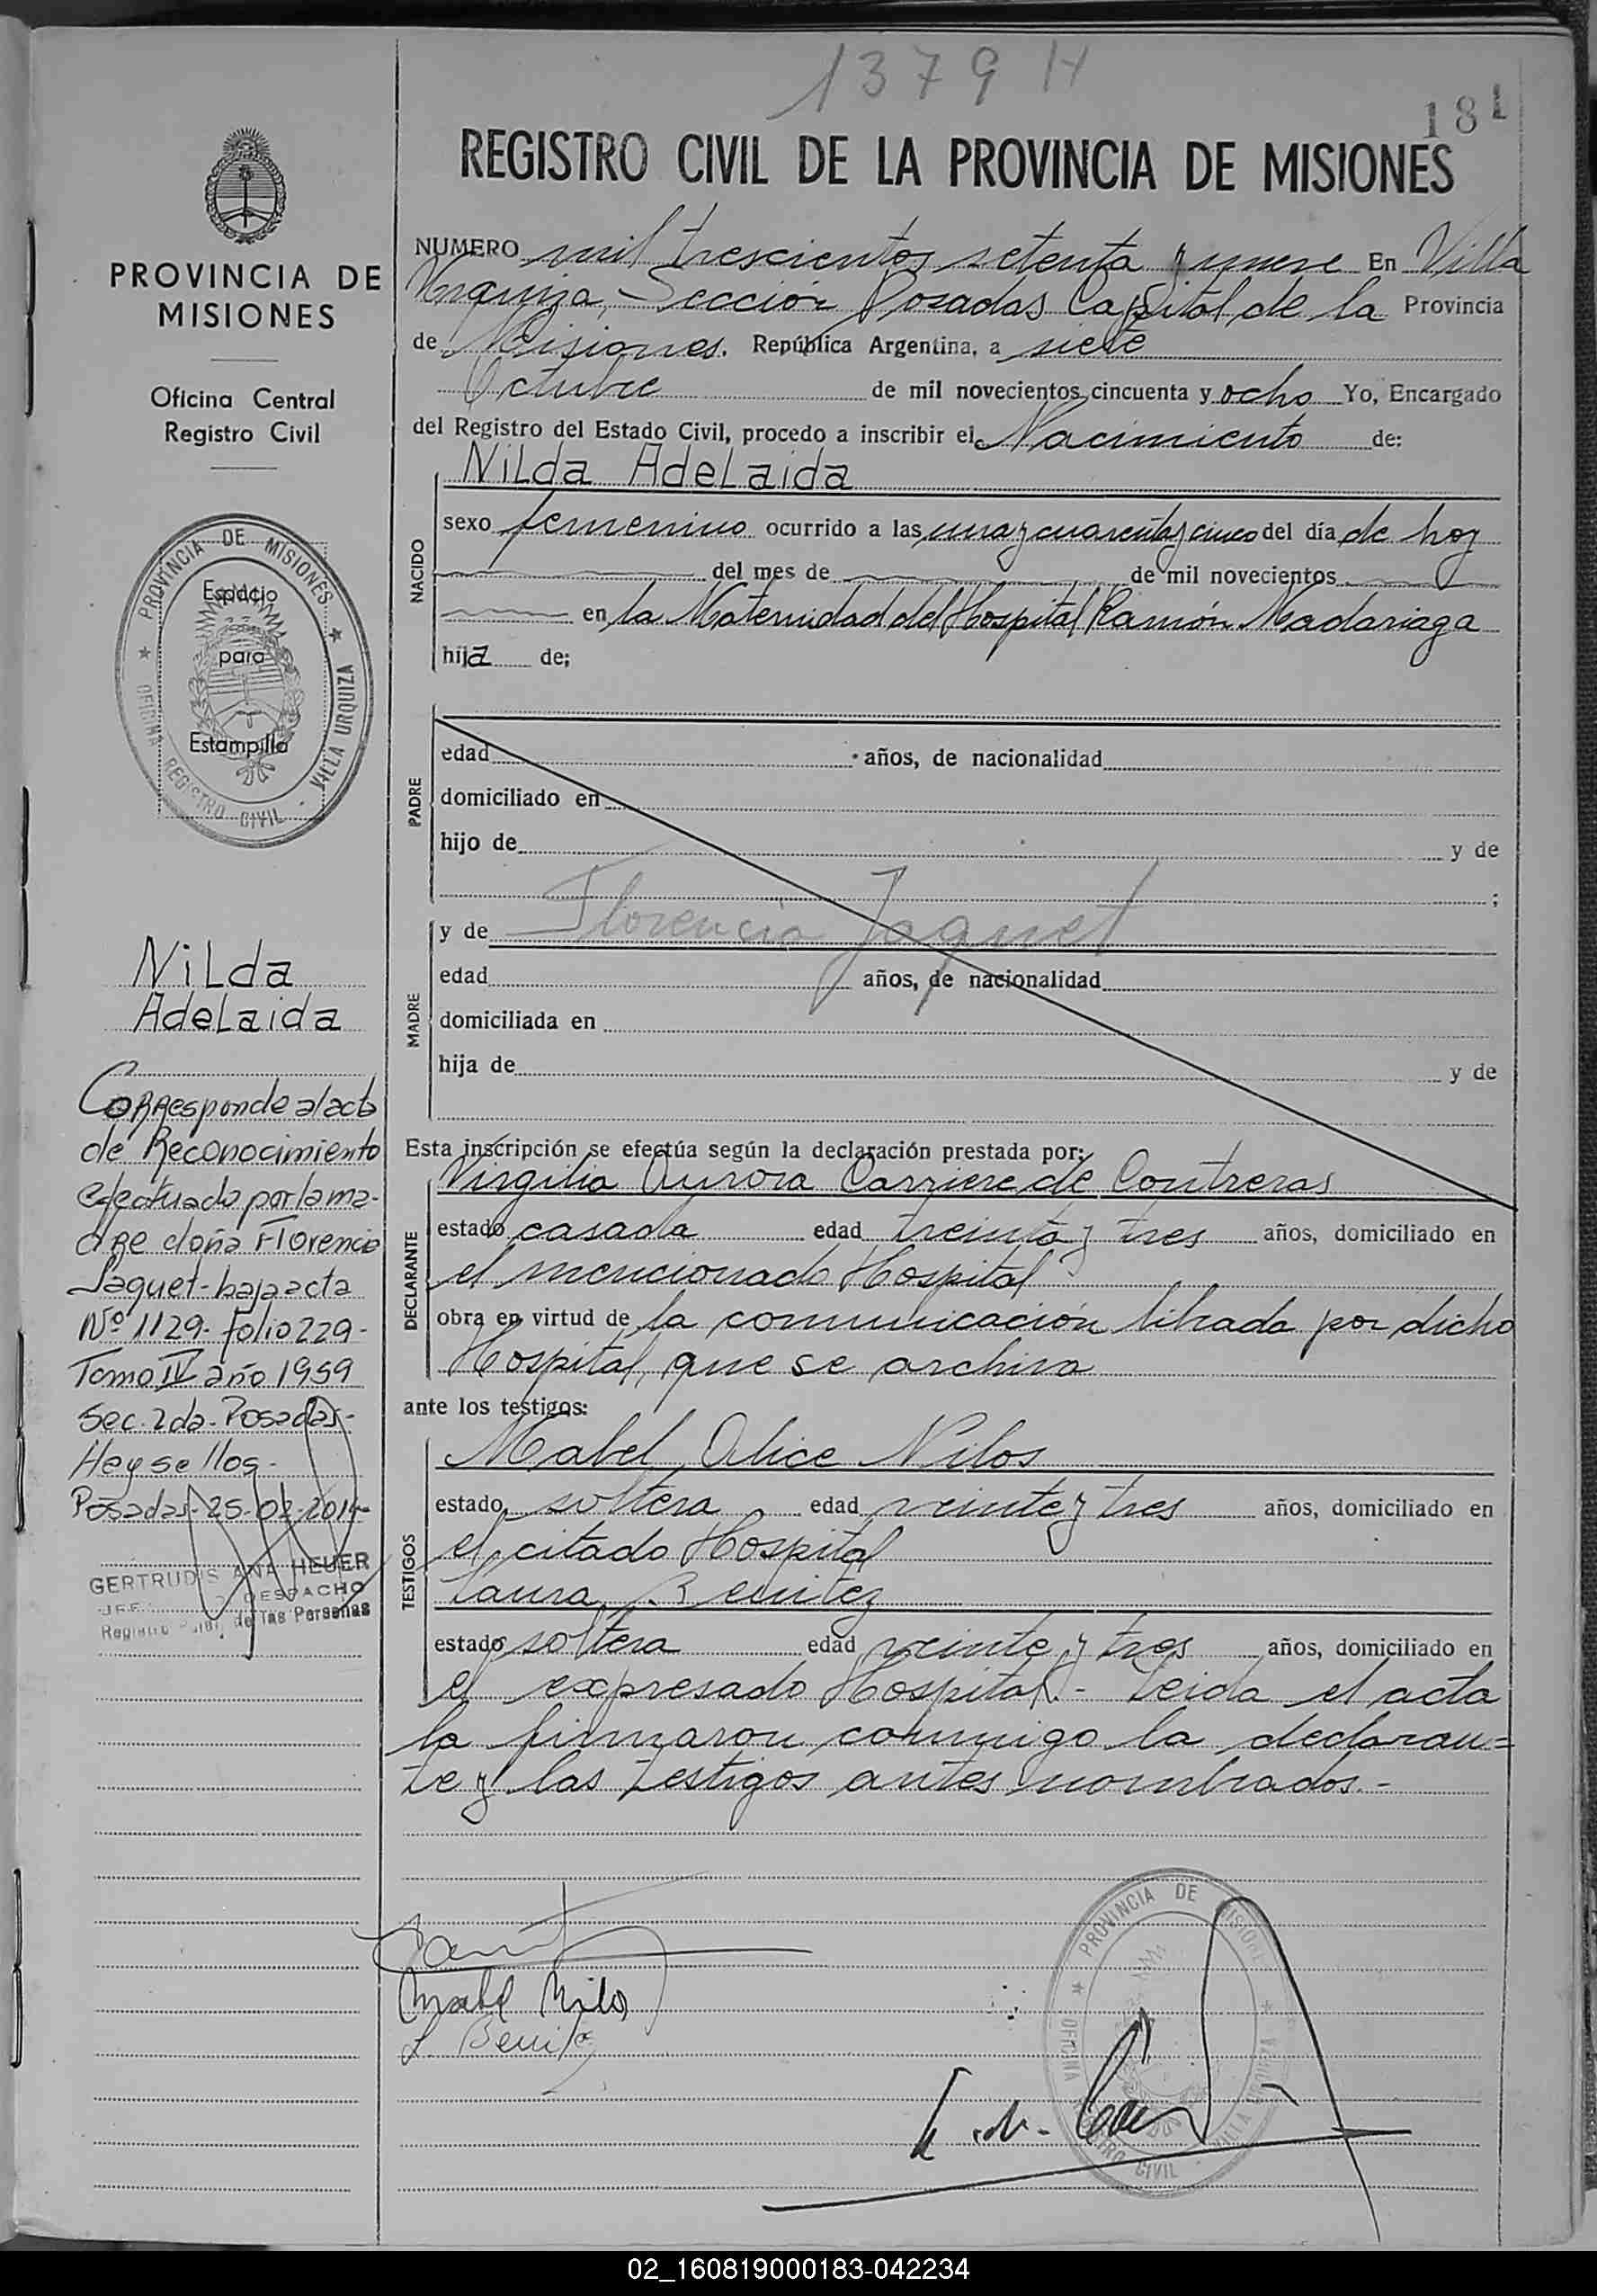 1379 H
181
REGISTRO CIVIL DE LA PROVINCIA DE MISIONES
PROVINCIA DE
MISIONES
Oficina Central
Registro Civil
PROVINCIA DE MISIONES
OFICINA REGISTRO CIVIL - VILLA URQUIZA
Espacio
para
Estampilla
Nilda
Adelaida
Corresponde al acta
de Reconocimiento
efectuado por la ma-
dre doña Florencia
Jaquet - bajo acta
Nº 1129 - folio 229 -
Tomo IV año 1959
Sec. 2da - Posadas -
Hay sellos -
Posadas - 25-02-2014-
GERTRUDIS ANA HEUER
DESPACHO
de las Personas
NUMERO mil trescientos setenta y nueve En Villa
Urquiza, Sección Posadas Capital de la Provincia
de Misiones. República Argentina, a siete
Octubre de mil novecientos cincuenta y ocho Yo, Encargado
del Registro del Estado Civil, procedo a inscribir el Nacimiento de:
NACIDO
Nilda Adelaida
sexo femenino ocurrido a las una y cuarenta y cinco del día de hoy
del mes de de mil novecientos
en la Maternidad del Hospital Ramón Madariaga
hija de;
PADRE
edad años, de nacionalidad
domiciliado en
hijo de y de
;
MADRE
y de Florencia Jaquet
edad años, de nacionalidad
domiciliada en
hija de y de
Esta inscripción se efectúa según la declaración prestada por:
DECLARANTE
Virgilia Aurora Carriere de Contreras
estado casada edad treinta y tres años, domiciliado en
el mencionado Hospital
obra en virtud de la comunicación librada por dicho
Hospital, que se archiva
ante los testigos:
TESTIGOS
Mabel Alice Nilos
estado soltera edad veinte y tres años, domiciliado en
el citado Hospital
Laura Benitez
estado soltera edad veinte y tres años, domiciliado en
el expresado Hospital.- Leida el acta
la firmaron conmigo la declaran=
te y las testigos antes nombrados.-
Mabel Nilos
L. Benitez
PROVINCIA DE MISIONES
OFICINA REGISTRO CIVIL - VILLA URQUIZA
02_160819000183-042234